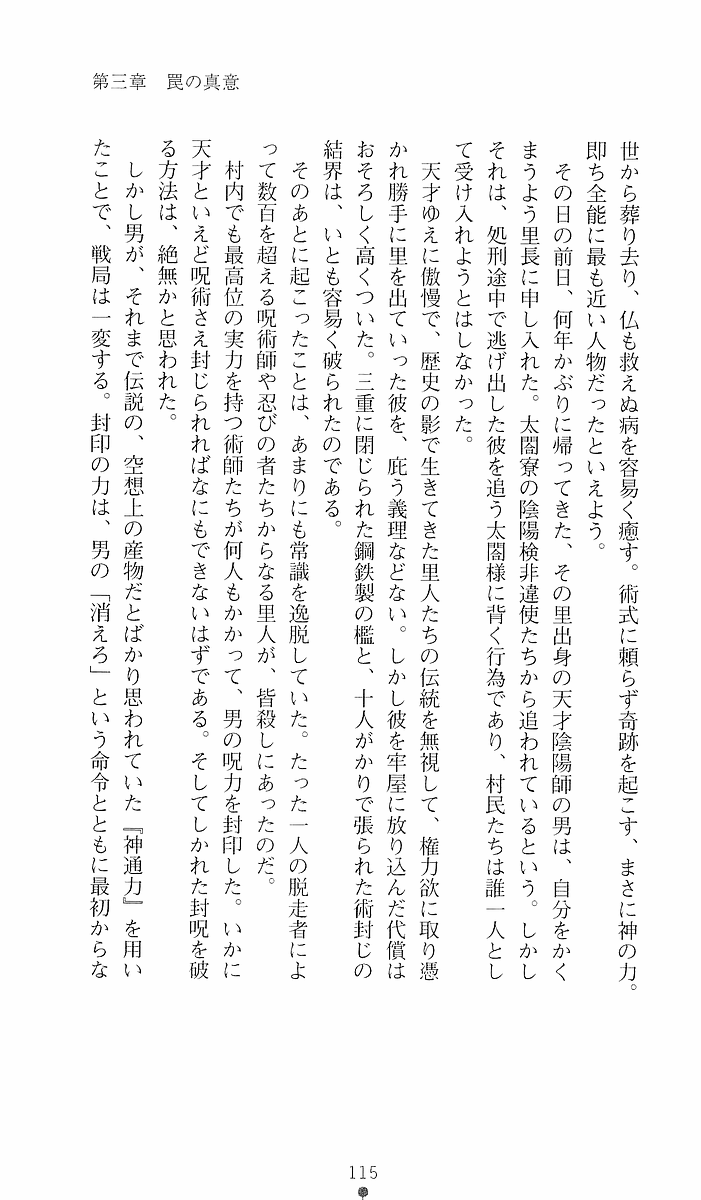 第三章　罠の真意
世から葬り去り、仏も救えぬ病を容易く癒す。術式に頼らず奇跡を起こす、まさに神の力。
即ち全能に最も近い人物だったといえよう。
　その日の前日、何年かぶりに帰ってきた、その里出身の天才陰陽師の男は、自分をかく
まうよう里長に申し入れた。太閤寮の陰陽検非違使たちから追われているという。しかし
それは、処刑途中で逃げ出した彼を追う太閤様に背く行為であり、村民たちは誰一人とし
て受け入れようとはしなかった。
　天才ゆえに傲慢で、歴史の影で生きてきた里人たちの伝統を無視して、権力欲に取り憑
かれ勝手に里を出ていった彼を、庇う義理などない。しかし彼を牢屋に放り込んだ代償は
おそろしく高くついた。三重に閉じられた鋼鉄製の檻と、十人がかりで張られた術封じの
結界は、いとも容易く破られたのである。
　そのあとに起こったことは、あまりにも常識を逸脱していた。たった一人の脱走者によ
って数百を超える呪術師や忍びの者たちからなる里人が、皆殺しにあったのだ。
　村内でも最高位の実力を持つ術師たちが何人もかかって、男の呪力を封印した。いかに
天才といえど呪術さえ封じられればなにもできないはずである。そしてしかれた封呪を破
る方法は、絶無かと思われた。
　しかし男が、それまで伝説の、空想上の産物だとばかり思われていた『神通力』を用い
たことで、戦局は一変する。封印の力は、男の「消えろ」という命令とともに最初からな
115